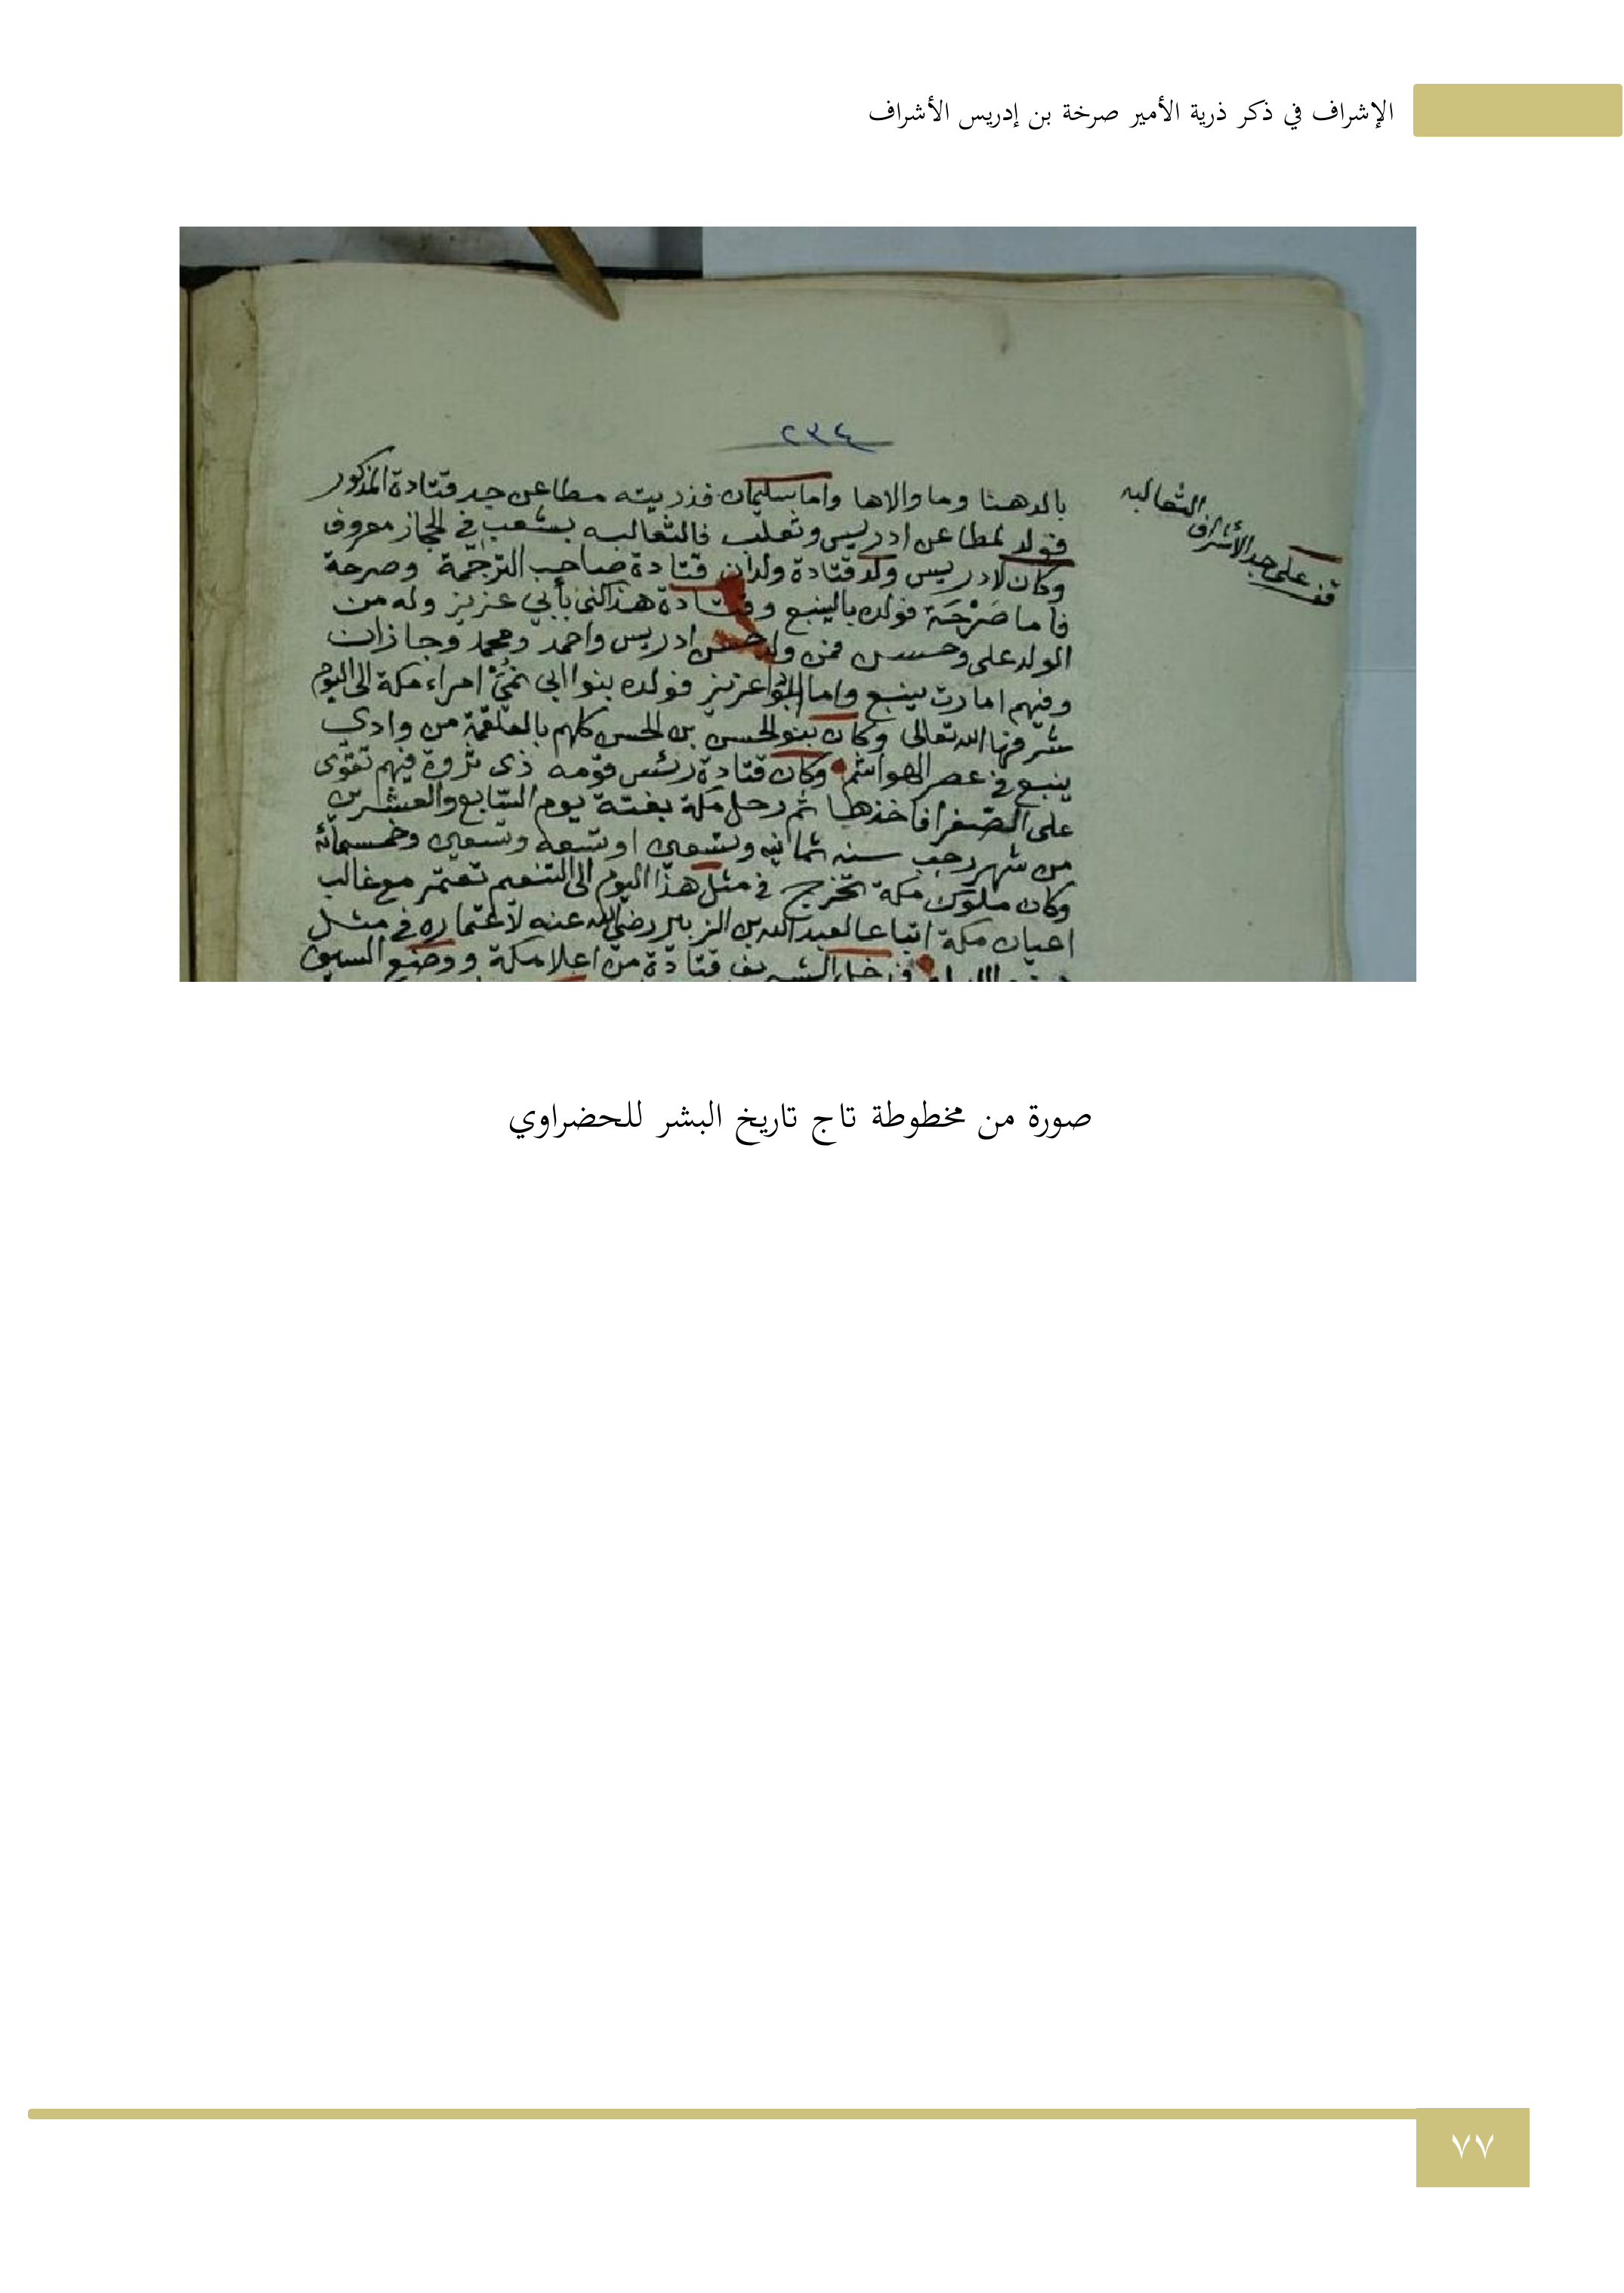 الإشراف في ذكر ذرية الأمير صرخة بن إدريس الأشراف
٢٣٤
بالدهنا وما والاها واما سليمان فذريته مطاعن جد قتادة المذكور
فولد لمطاعن ادريس وثعلب فالثعالبه بشعب في الحجاز معروف
وكان لادريس ولد قتادة ولدان قتادة صاحب الترجمة وصرحة
فاما صَرْحَة فولده بالينبع وقتادة هذا اكنى بأبي عزيز وله من
الولد على وحسن فمن ولد حسن ادريس واحمد ومحمد وجازان
وفيهم امارت ينبع واما ابوا عزيز فولده بنوا ابي نمي امراء مكة الى اليوم
شرفها الله تعالى وكان بنو الحسن بن الحسن كلهم بالعلقمية من وادي
ينبع في عصر الهواشم وكان قتادة رئس قومه ذى ثروة فيهم تقوى
على الصفرا فاخذها ثم رحل مكة بغتة يوم السابع والعشرين
من شهر رجب سنه ثمانيه وتسعين او تسعه وتسعين وخمسمائة
وكان ملوك مكة تخرج في مثل هذا اليوم الى التنعيم تعتمر مع غالب
اعيان مكة اتباعا لعبد الله بن الزبير رضي الله عنه لاعتماره في مثل
فدخل الشريف قتادة من اعلا مكة ووضع السيف
قف على جد الأشراف الثعالبه
صورة من مخطوطة تاج تاريخ البشر للحضراوي
٧٧